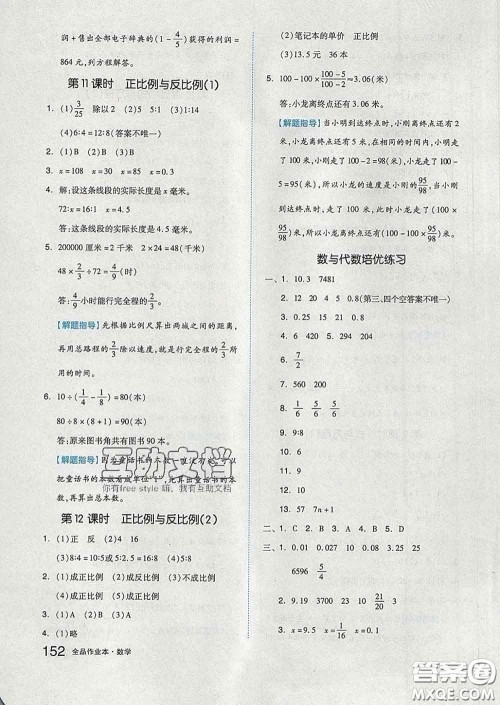 润+售出全部电子辞典的(1-4/5)获得的利润=
864元,列方程解答。
第11课时 正比例与反比例(1)
1. (1)3/25 除以2 (2)5 5:1 (3)1:14
(4)6:4=12:8(答案不唯一)
2. (1)B (2)A (3)B
3. x=108 x=30 x=85 x=0.3
4. 解:设这条线段的实际长度是x毫米。
72:x=16:1 x=4.5
答:这条线段的实际长度是4.5毫米。
5. 200000厘米=2千米 2×24=48(千米)
48×2/3÷72=4/9(小时)
答:4/9小时能行完全程的2/3。
【解题指导】先根据比例尺算出两城之间的距离,
再用总路程的2/3除以速度,就是行完全程的2/3所
用的时间。
6. 10÷(1/4-1/8)=80(本)
80×1/8+80=90(本)
答:原来图书角共有图书90本。
把童话书的本数看成单位“1”,
再算出总本数。
互助文档
你有free style 嘛, 我有互助文档
第12课时 正比例与反比例(2)
1. (1)正 反 (2)4 16
(3)8:4=10:5或5:10=4:8(答案不唯一)
2. (1)成正比例 (2)成反比例 (3)不成比例
(4)成正比例
3. (1)A (2)B (3)B
4. (1)略
152 全品作业本·数学
(2)笔记本的单价 正比例
(3)13.5元 36本
5. 100-100×(100-5)/(100-2)≈3.06(米)
答:小龙离终点还有3.06米。
【解题指导】当小明到达终点时,小刚离终点还有2
米,小龙离终点还有5米,在相同的时间内,小明走
了100米,小刚走了100-2=98(米),小龙走了100
-5=95(米),所以小龙的速度是小刚的95/98,当小刚
到达终点时,小龙走了(100×95/98)米,所以当小刚到
达终点时,小龙离终点还有(100-100×95/98)米。
数与代数培优练习
一、1. 10.3 7481
2. 12 20 4 0.8(第三、四个空答案不唯一)
3. 0.25 15 21 0.8
4. 0.45 220
5. 6 29 4 294
6. 7/2
7. 9:40
8. 30 15
9. 1/6 5/6 5/6
10. 30
11. 6 150
12. 8
13. 57 7n+1
二、1. C 2. B 3. A 4. B 5. B 6. A
三、1. 0.01 40 3.6 45
6596 5/4
2. 9.19 3700 3/4 20
3. x=9.5 x=1/16 x=0.1
答案圈
MXQE.COM